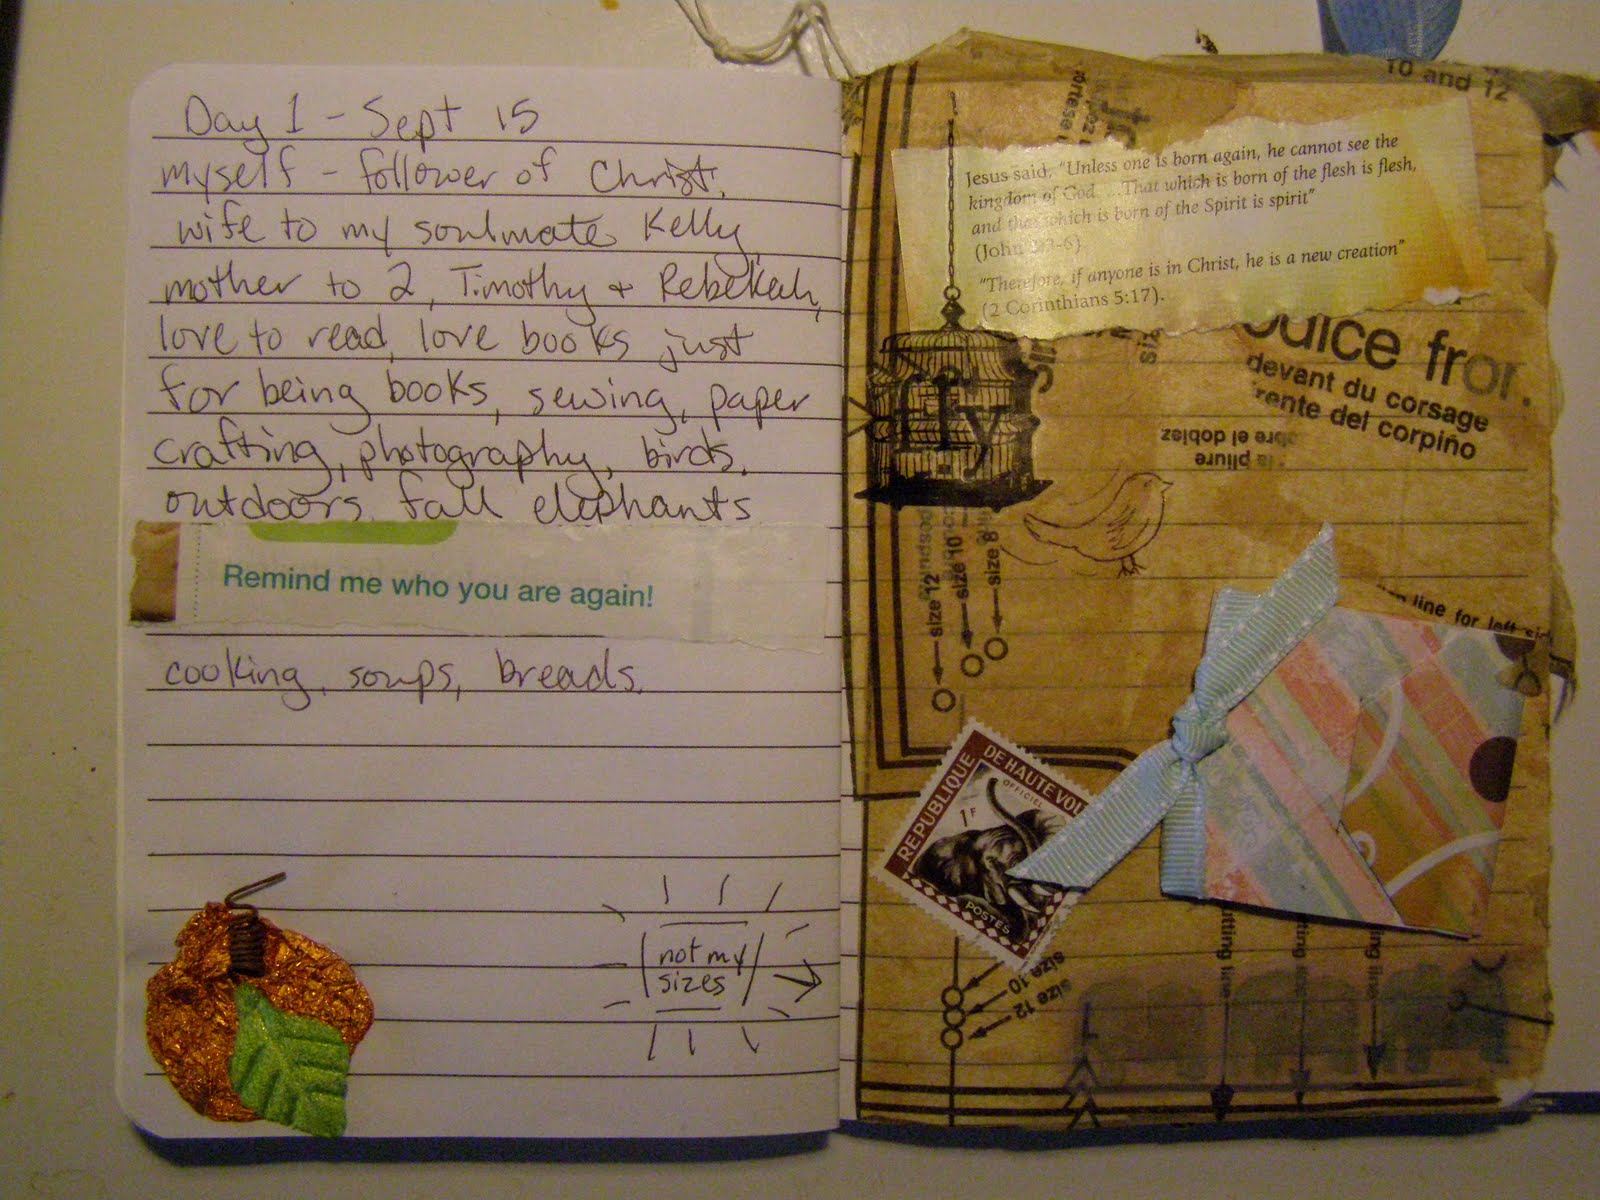 Day 1 - Sept 15
myself - follower of Christ,
wife to my soulmate Kelly,
mother to 2, Timothy + Rebekah,
love to read, love books just
for being books, sewing, paper
crafting, photography, birds,
outdoors, fall elephants
Remind me who you are again!
cooking, soups, breads,
not my
sizes
10 and 12
Jesus said, "Unless one is born again, he cannot see the
kingdom of God ... That which is born of the flesh is flesh,
and that which is born of the Spirit is spirit"
(John 3:3-6)
"Therefore, if anyone is in Christ, he is a new creation"
(2 Corinthians 5:17).
fly
devant du corsage
del corpiño
el doblez
la pliure
size 12
size 10
size 8
line for left
REPUBLIQUE DE HAUTE VOL
OFFICIEL
1F
POSTES
size 10
size 12
cutting line